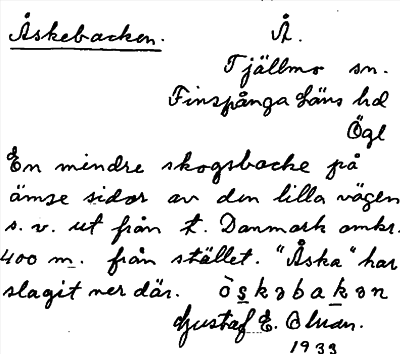 Åskebacken. Å.
Tjällmo sn.
Finspånga läns hd
Ögl
En mindre skogsbacke på
ömse sidor av den lilla vägen
s. v. ut från t. Danmark omkr.
400 m. från stället. "Åska" har
slagit ner där. ò̀s̱kəbaḵən
Gustaf E. Olván.
1933